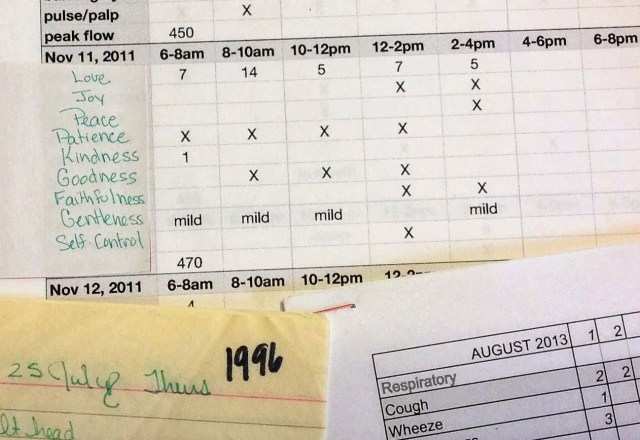 pulse/palp X
peak flow 450
Nov 11, 2011 6-8am 8-10am 10-12pm 12-2pm 2-4pm 4-6pm 6-8pm
Love 7 14 5 7 5
Joy X X
Peace X
Patience X X X X
Kindness 1
Goodness X X X
Faithfulness X X
Gentleness mild mild mild mild
Self-Control X
470
Nov 12, 2011 6-8am 8-10am 10-12pm
25 July Thurs 1996
head
AUGUST 2013 1 2
Respiratory 2 2
Cough 1
Wheeze 3